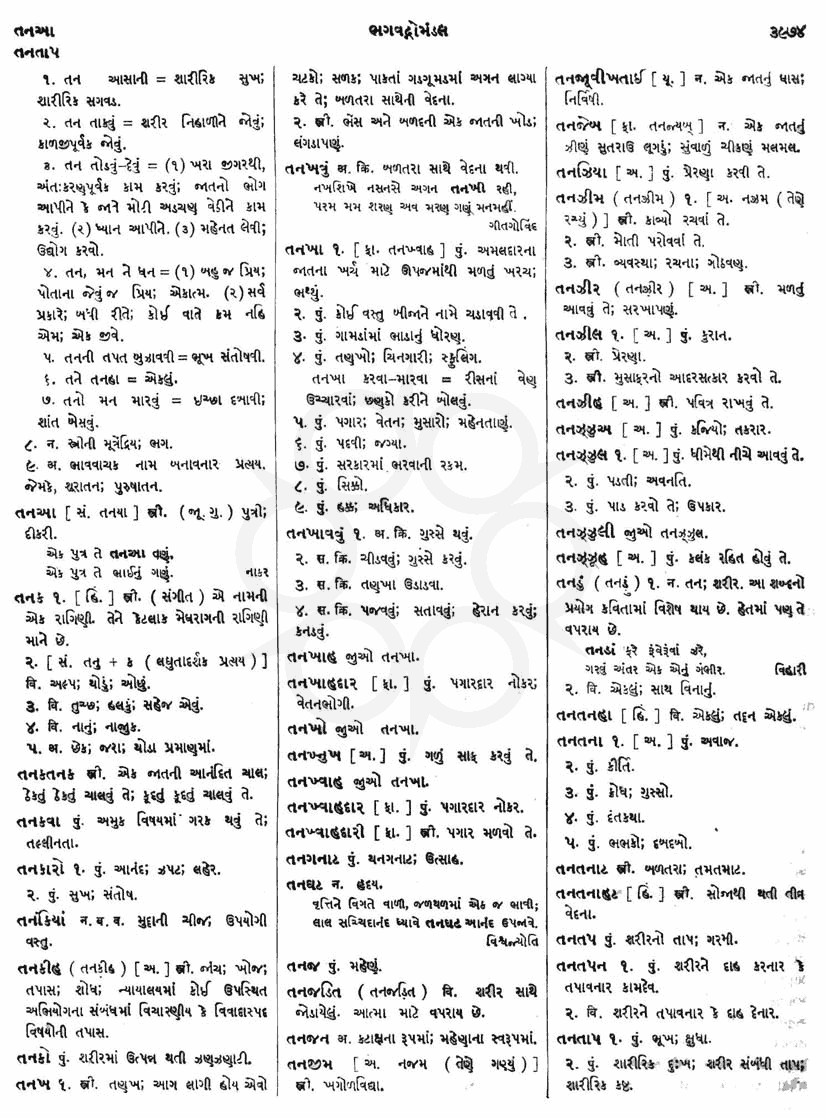 તનઆ
ભગવદ્ગોમંડલ
૩૯૭૪
તનતાપ
૧. તન આસાની = શારીરિક સુખ;
શારીરિક સગવડ.
૨. તન તાકવું = શરીર નિહાળીને જોવું;
કાળજીપૂર્વક જોવું.
૩. તન તોડવું-દેવું = (૧) ખરા જીગરથી,
અંતઃકરણપૂર્વક કામ કરવું; જાતનો ભોગ
આપીને કે જાતે મોટી અડચણ વેઠીને કામ
કરવું. (૨) ધ્યાન આપીને. (૩) મહેનત લેવી;
ઉદ્યોગ કરવો.
૪. તન, મન ને ધન = (૧) બહુ જ પ્રિય;
પોતાના જેવું જ પ્રિય; એકાત્મ. (૨) સર્વ
પ્રકારે; બધી રીતે; કોઈ વાતે કમ નહિ
એમ; એક જીવે.
૫. તનની તપત બુઝાવવી = ભૂખ સંતોષવી.
૬. તને તનહા = એકલું.
૭. તનો મન મારવું = ઇચ્છા દબાવી;
શાંત બેસવું.
૮. ન. સ્ત્રીની મૂત્રેંદ્રિય; ભગ.
૯. અ. ભાવવાચક નામ બનાવનાર પ્રત્યય.
જેમકે, શૂરાતન; પુરુષાતન.
તનઆ [ સં. તનયા ] સ્ત્રી. (જૂ. ગુ.) પુત્રી;
દીકરી.
એક પુત્ર તે તનઆ તણું.
એક પુત્ર તે ભાઈનું ગણું. નાકર
તનક ૧. [ હિં. ] સ્ત્રી. ( સંગીત ) એ નામની
એક રાગિણી. તેને કેટલાક મેઘરાગની રાગિણી
માને છે.
૨. [ સં. તનુ + ક ( લઘુતાદર્શક પ્રત્યય ) ]
વિ. અલ્પ; થોડું; ઓછું.
૩. વિ. તુચ્છ; હલકું; સહેજ એવું.
૪. વિ. નાનું; નાજુક.
૫. અ. છેક; જરા; થોડા પ્રમાણમાં.
તનકતનક સ્ત્રી. એક જાતની આનંદિત ચાલ;
ઠેકતું ઠેકતું ચાલવું તે; કૂદતું કૂદતું ચાલવું તે.
તનકવા પું. અમુક વિષયમાં ગરક થવું તે;
તલ્લીનતા.
તનકારો ૧. પું. આનંદ; ઝપટ; લહેર.
૨. પું. સુખ; સંતોષ.
તનકિયાં ન. બ. વ. મુદ્દાની ચીજ; ઉપયોગી
વસ્તુ.
તનકીહ ( તનકીહ ) [ અ. ] સ્ત્રી. જાંચ; ખોજ;
તપાસ; શોધ; ન્યાયાલયમાં કોઈ ઉપસ્થિત
અભિયોગના સંબંધમાં વિચારણીય કે વિવાદાસ્પદ
વિષયોની તપાસ.
તનકો પું. શરીરમાં ઉત્પન્ન થતી ઝણઝણાટી.
તનખ ૧. સ્ત્રી. તણખ; આગ લાગી હોય એવો
ચટકો; સળક; પાકતાં ગડગૂમડમાં અગન લાગ્યા
કરે તે; બળતરા સાથેની વેદના.
૨. સ્ત્રી. ભેંસ અને બળદની એક જાતની ખોડ;
લંગડાપણું.
તનખવું અ. ક્રિ. બળતરા સાથે વેદના થવી.
નખશિખે નસનસે અગન તનખી રહી,
પરમ મમ શરણ અવ મરણ ગણું મનમહીં.
ગીતગોવિંદ
તનખા ૧. [ ફા. તનખ્વાહ ] પું. અમલદારના
જાતના ખર્ચ માટે ઊપજમાંથી મળતું ખરચ;
ભથ્થું.
૨. પું. કોઈ વસ્તુ બીજાને નામે ચડાવવી તે .
૩. પું. ગામડામાં ભાડાનું ધોરણ.
૪. પું. તણખો; ચિનગારી; સ્ફુલિંગ.
તનખા કરવા-મારવા = રીસનાં વેણ
ઉચ્ચારવાં; છણકો કરીને બોલવું.
૫. પું. પગાર; વેતન; મુસારો; મહેનતાણું.
૬. પું. પદવી; જગ્યા.
૭. પું. સરકારમાં ભરવાની રકમ.
૮. પું. સિક્કો.
૯. પું. હક્ક; અધિકાર.
તનખાવવું ૧. અ. ક્રિ. ગુસ્સે થવું.
૨. સ. ક્રિ. ચીડવવું; ગુસ્સે કરવું.
૩. સ. ક્રિ. તણખા ઉડાડવા.
૪. સ. ક્રિ. પજવવું; સતાવવું; હેરાન કરવું;
કનડવું.
તનખાહ જુઓ તનખા.
તનખાહદાર [ ફા. ] પું. પગારદાર નોકર;
વેતનભોગી.
તનખો જુઓ તનખા.
તનખ્નુખ [ અ. ] પું. ગળું સાફ કરવું તે.
તનખ્વાહ જુઓ તનખા.
તનખ્વાહદાર [ ફા. ] પું. પગારદાર નોકર.
તનખ્વાહદારી [ ફા. ] સ્ત્રી. પગાર મળવો તે.
તનગનાટ પું. થનગનાટ; ઉત્સાહ.
તનઘટ ન. હૃદય.
વૃત્તિને વિગતે વાળી, જળથળમાં એક જ ભાવી;
લાલ સચ્ચિદાનંદ ધ્યાવે તનઘટ આનંદ ઉપજાવે.
વિશ્વજ્યોતિ
તનજ પું. મહેણું.
તનજડિત ( તનજડ઼િત ) વિ. શરીર સાથે
જોડાયેલું. આત્મા માટે વપરાય છે.
તનજન અ. કટાક્ષના રૂપમાં; મહેણાના સ્વરૂપમાં.
તનજીમ [ અ. નજમ ( તેણે ગણ્યું ) ]
સ્ત્રી. ખગોળવિદ્યા.
તનજૂવીખતાઈ [ યૂ. ] ન. એક જાતનું ઘાસ;
નિર્વિષી.
તનજેબ [ ફા. તનજ્યબ્ ] ન. એક જાતનું
ઝીણું સુતરાઉ લૂગડું; સુંવાળું ચીકણું મલમલ.
તનઝિયા [ અ. ] પું. પ્રેરણા કરવી તે.
તનઝીમ ( તનઝીમ ) ૧. [ અ. નઝમ ( તેણે
રચ્યું ) ] સ્ત્રી. કાવ્યો રચવાં તે.
૨. સ્ત્રી. મોતી પરોવવાં તે.
૩. સ્ત્રી. વ્યવસ્થા; રચના; ગોઠવણ.
તનઝીર ( તનઝીર ) [ અ. ] સ્ત્રી. મળતું
આવવું તે; સરખાપણું.
તનઝીલ ૧. [ અ. ] પું. કુરાન.
૨. સ્ત્રી. પ્રેરણા.
૩. સ્ત્રી. મુસાફરનો આદરસત્કાર કરવો તે.
તનઝીહ [ અ. ] સ્ત્રી. પવિત્ર રાખવું તે.
તનઝ્ઝુઅ [ અ. ] પું. કજિયો; તકરાર.
તનઝ્ઝુલ ૧. [ અ. ] પું. ધીમેથી નીચે આવવું તે.
૨. પું. પડતી; અવનતિ.
૩. પું. પાડ કરવો તે; ઉપકાર.
તનઝ્ઝુલી જુઓ તનઝ્ઝુલ.
તનઝ્ઝૂહ [ અ. ] પું. કલંક રહિત હોવું તે.
તનડું ( તનડ઼ું ) ૧. ન. તન; શરીર. આ શબ્દનો
પ્રયોગ કવિતામાં વિશેષ થાય છે. હેતમાં પણ તે
વપરાય છે.
તનડાં ફરે રૂંવેરૂંવાં ફરે,
ગરવું અંતર એક એનું ગંભીર. વિહારી
૨. વિ. એકલું; સાથ વિનાનું.
તનતનહા [ હિં. ] વિ. એકલું; તદ્દન એકલું.
તનતના ૧. [ અ. ] પું. અવાજ.
૨. પું. કીર્તિ.
૩. પું. ક્રોધ; ગુસ્સો.
૪. પું. દંતકથા.
૫. પું. ભભકો; દબદબો.
તનતનાટ સ્ત્રી. બળતરા; તમતમાટ.
તનતનાહટ [ હિં. ] સ્ત્રી. સોજાથી થતી તીવ્ર
વેદના.
તનતપ પું. શરીરનો તાપ; ગરમી.
તનતપન ૧. પું. શરીરને દાહ કરનાર કે
તપાવનાર કામદેવ.
૨. વિ. શરીરને તપાવનાર કે દાહ દેનાર.
તનતાપ ૧. પું. ભૂખ; ક્ષુધા.
૨. પું. શારીરિક દુઃખ; શરીર સંબંધી તાપ;
શારીરિક કષ્ટ.